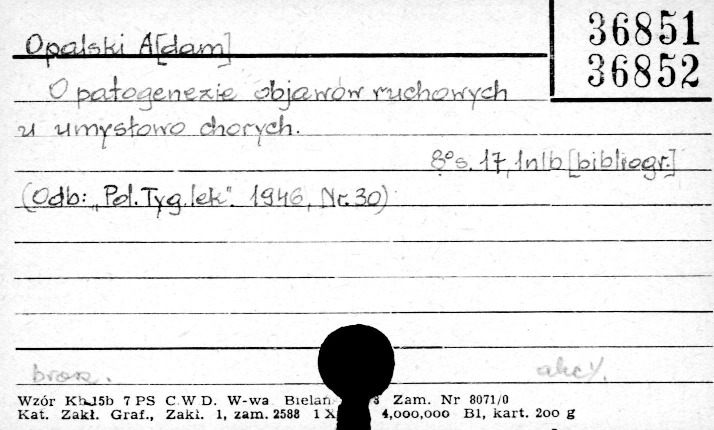 36851
36852
Opalski A[dam]
O patogenezie objawów ruchowych
u umysłowo chorych.
8° s. 17, 1nlb [bibliogr.]
(Odb: „Pol. Tyg. lek". 1946, Nr. 30)
brosz. akcy.
Wzór Kb 15b 7 PS C.W D. W-wa Zam. Nr 8071/0
Kat. Zakł. Graf., Zakł. 1, zam. 2588 4,000,000 B1, kart. 200 g